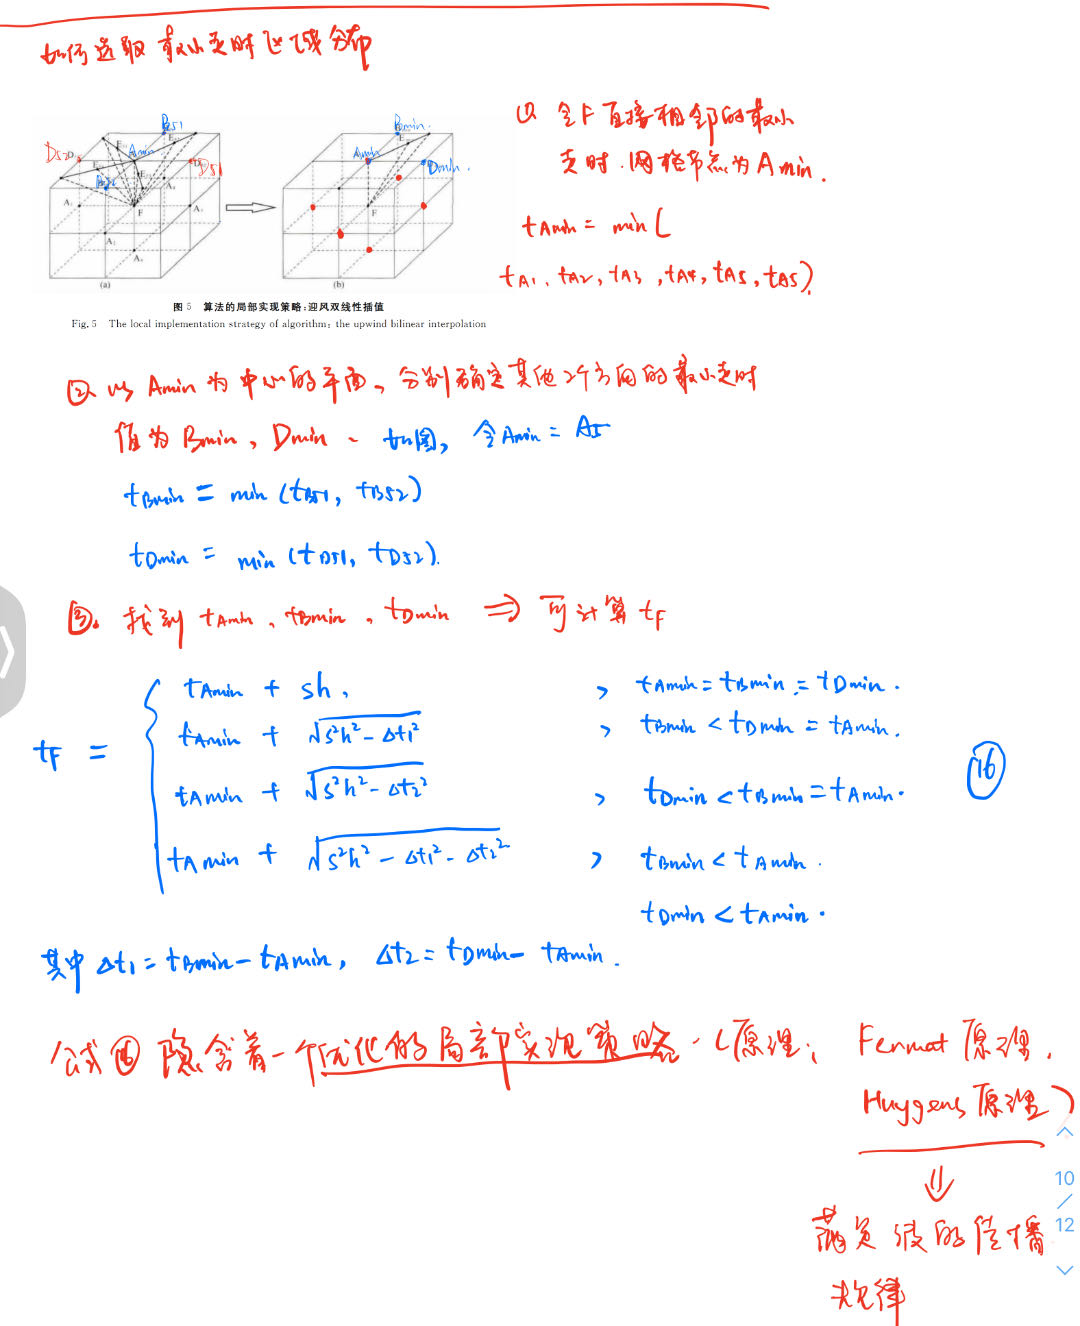 如何选取最小走时飞线分布
Bs1
Ds2
Amin
Ds1
Bs2
F
A₁
(a)
Bmin
Amin
Dmin
F
(b)
图 5 算法的局部实现策略:迎风双线性插值
Fig. 5 The local implementation strategy of algorithm: the upwind bilinear interpolation
① 令F直接相邻的最小
走时.网格节点为Amin.
tAmin = min(
tA1, tA2, tA3, tA4, tA5, tA5).
② 以 Amin 为中心的平面,分别确定其他2个方向的最小走时
值为 Bmin, Dmin. 如图, 令Amin = A5
tBmin = min (tB51, tB52)
tDmin = min (tD51, tD52).
③. 找到 tAmin, tBmin, tDmin ⇒ 可计算 tF
tF =
tAmin + sh, , tAmin = tBmin = tDmin.
tAmin + √(s²h² - Δt₁²) , tBmin < tDmin = tAmin.
tAmin + √(s²h² - Δt₂²) , tDmin < tBmin = tAmin.
⑯
tAmin + √(s²h² - Δt₁² - Δt₂²) , tBmin < tAmin.
tDmin < tAmin.
其中 Δt₁ = tBmin - tAmin, Δt₂ = tDmin - tAmin.
公式⑯ 隐含着一个优化的局部实现策略.(原理: Fermat 原理.
Huygens 原理)
⇓
满足波的传播
规律
10
/
12